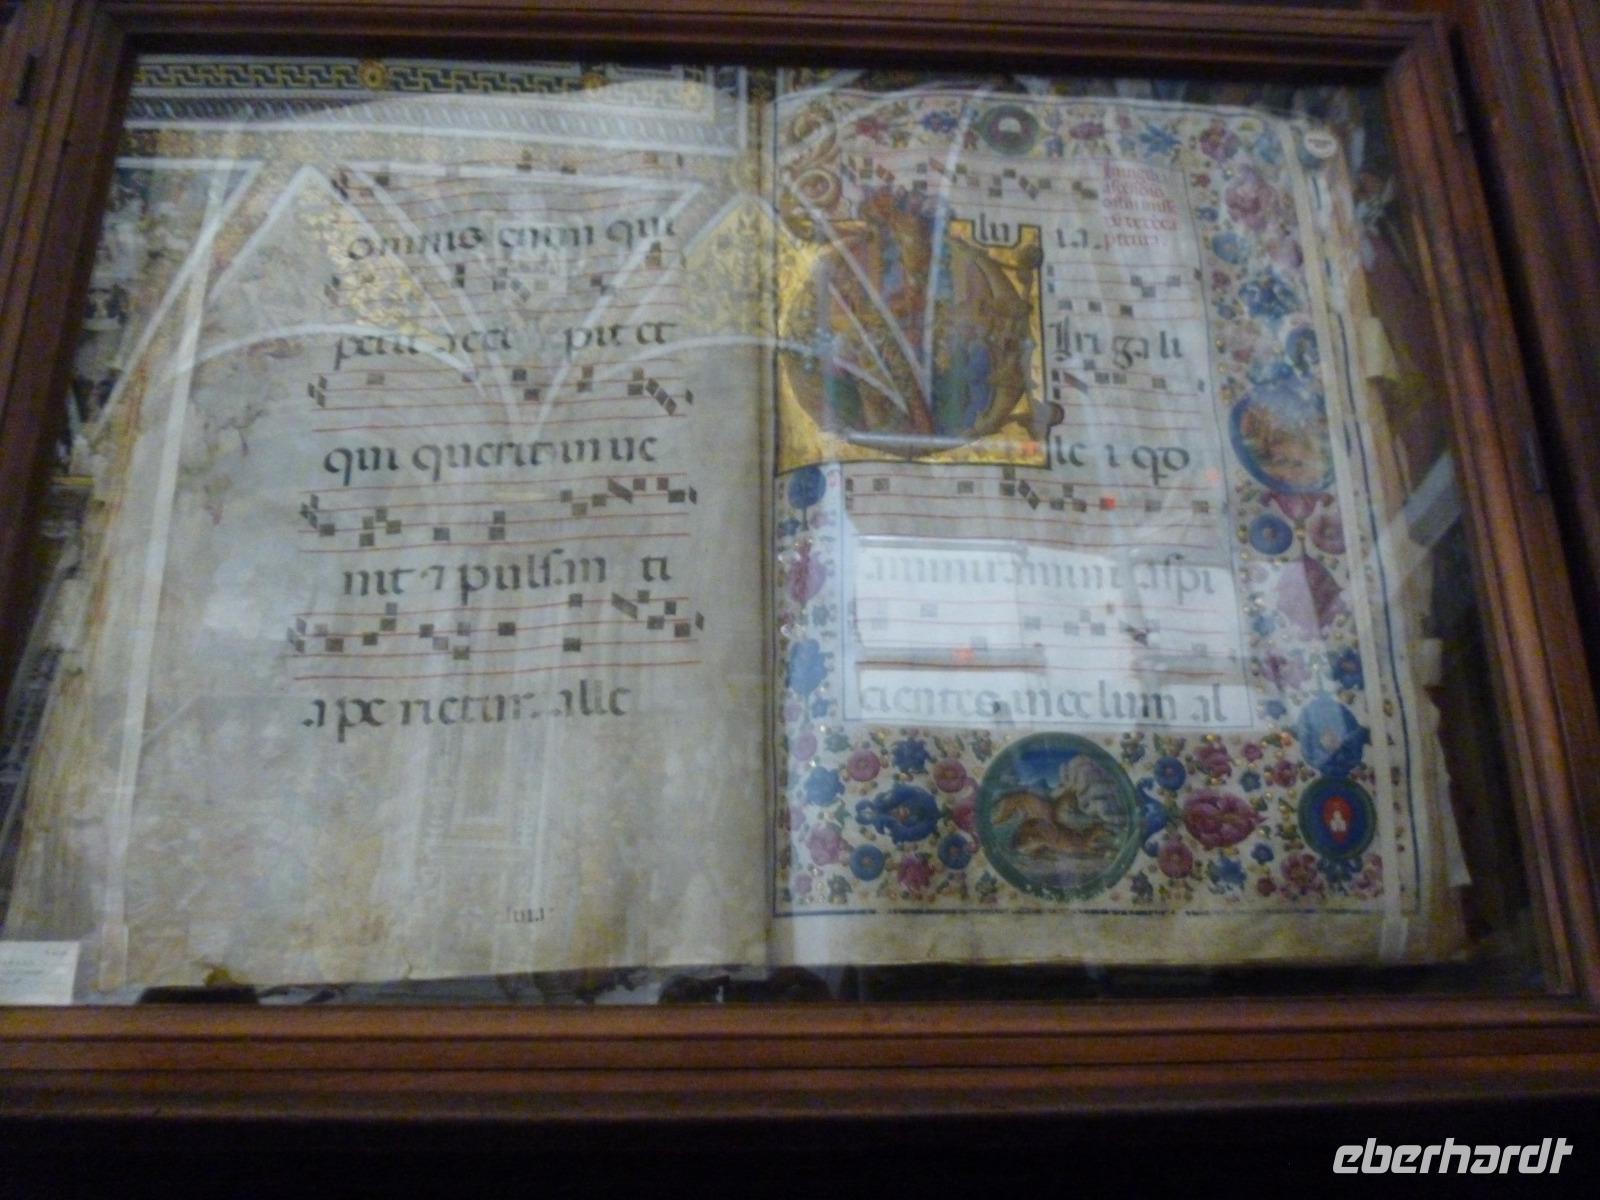 omnis enim qui
petit accipit et
qui querit inve
nit ⁊ pulsan ti
aperietur. alle
lu ia.
Viri gali
lei qd
ammiramini aspi
cientes in celum al
eberhardt